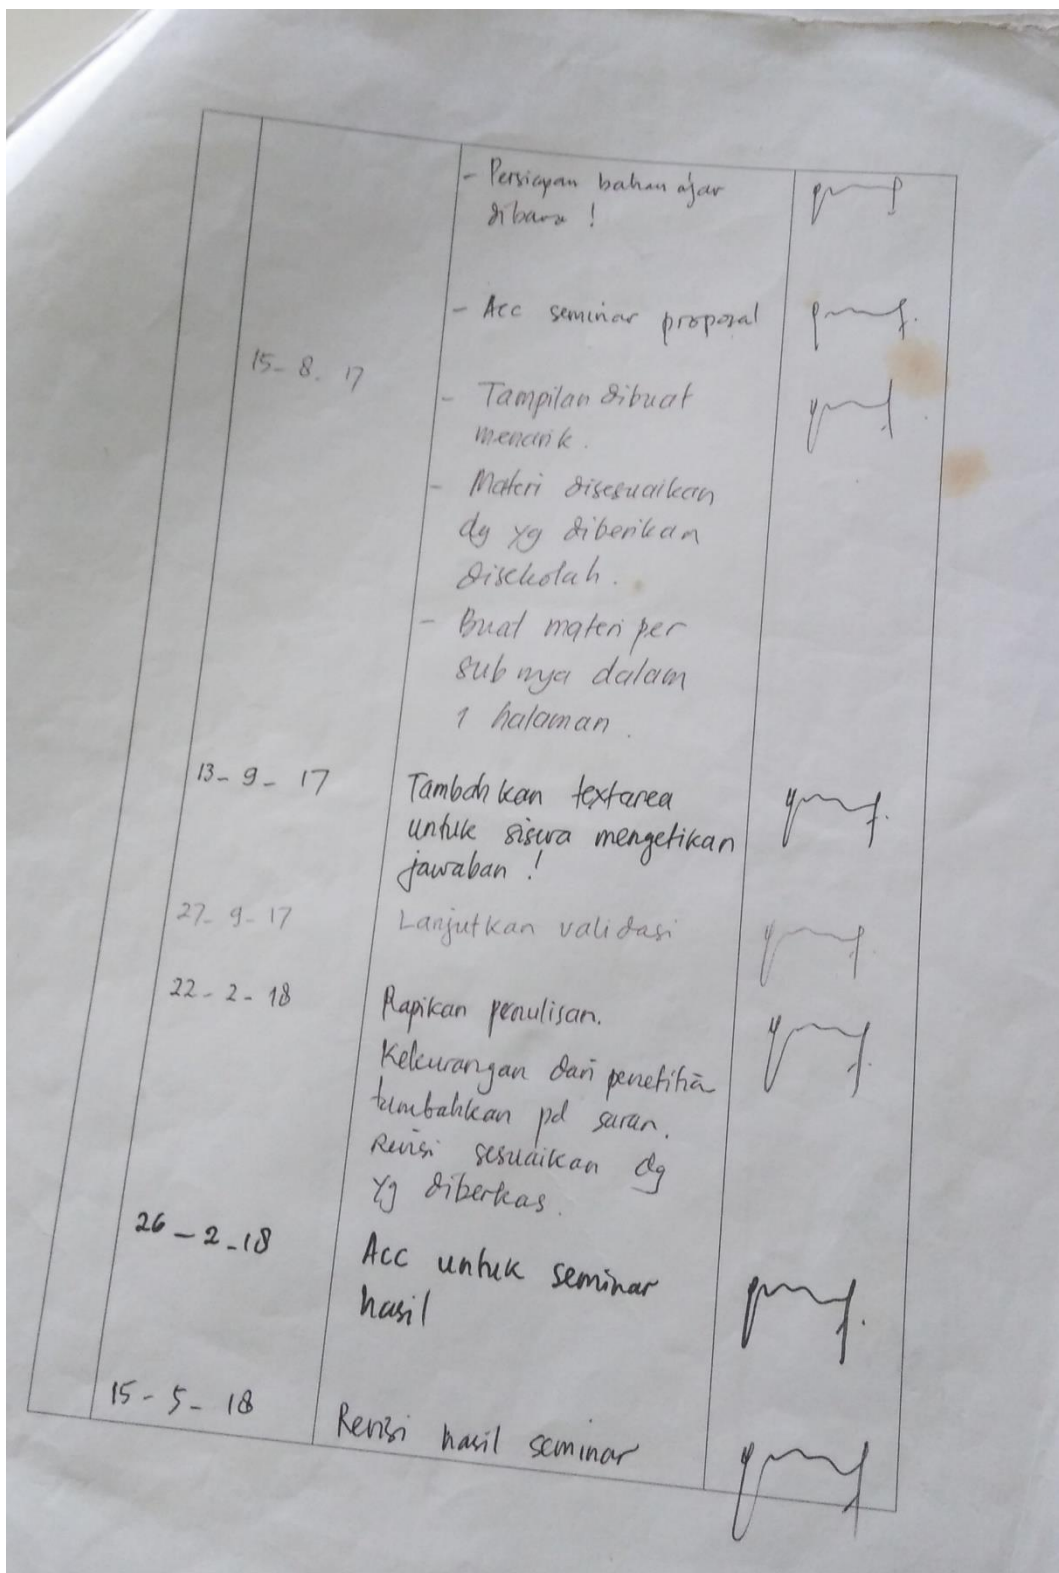 - Persiapan bahan ajar
dibawa !
- Acc seminar proposal
15-8-17
- Tampilan dibuat
menarik.
- Materi disesuaikan
dg yg diberikan
disekolah.
- Buat materi per
sub nya dalam
1 halaman.
13-9-17 Tambahkan textarea
untuk siswa mengetikan
jawaban !
27-9-17 Lanjutkan validasi
22-2-18 Rapikan penulisan.
Kekurangan dari
tambahkan pd saran.
Revisi sesuaikan dg
yg diberkas.
26-2-18 Acc untuk seminar
hasil
15-5-18 Revisi hasil seminar